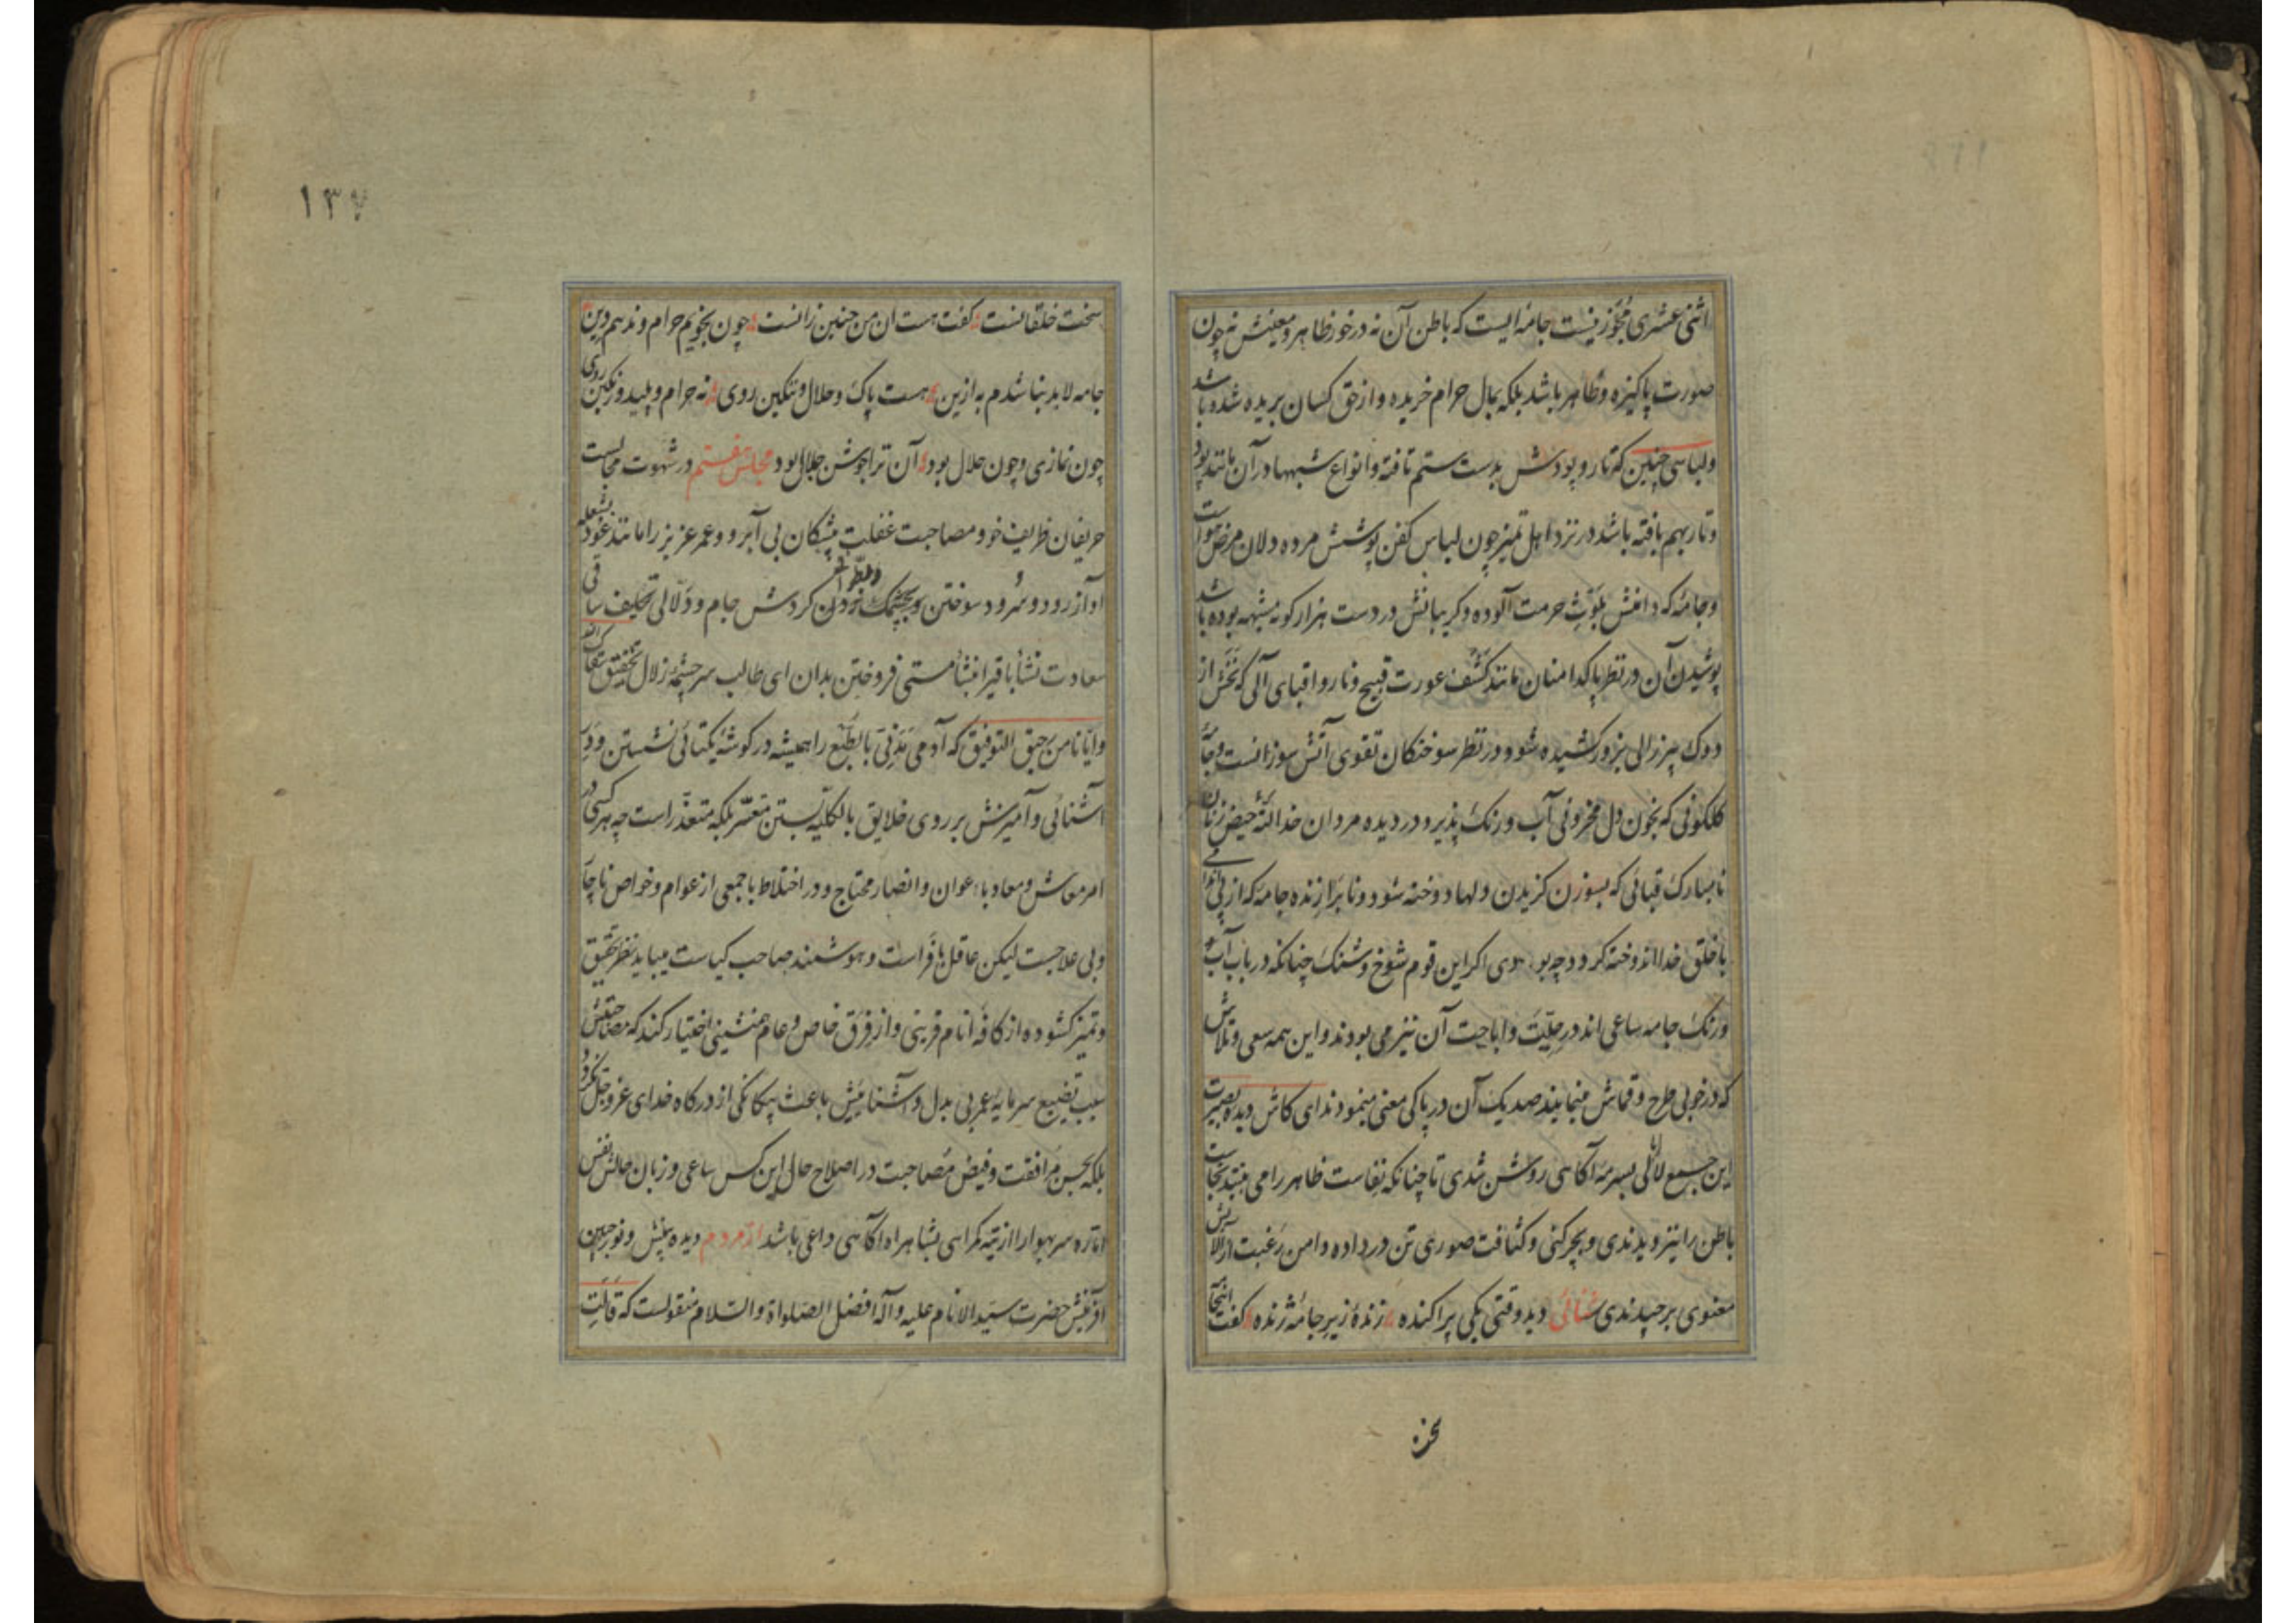 اثنی عشری مجوّز نیست جامه ایست که باطن آن نه در خور ظاهر و معنیش نه چون
صورت پاکیزه و ظاهر باشد بلکه بمال حرام خریده و از حق کسان بریده شده باشد
ولباسی چنین که تار و پودش بدست ستم تافته و انواع شبهها در آن مانند پود
و تار بهم بافته باشد در نزد اهل تمیز چون لباس کفن پوشش مرده دلان مرض
وجامهٔ که دامنش بلوث حرمت آلوده و کریبانش در دست هزار کونه مشبهه بوده باشد
پوشیدن آن در نظر پاکدامنان مانند کشف عورت قبیح و ناروا قبای آلی که نخش از
دوک پیرزالی بزور کشیده شود در نظر سوختکان تقوی آتش سوزانست و جامهٔ
کلکونی که بخون دل محزونی آب و رنک پذیرد در دیده مردان خدا لتهٔ حیض زنان
نامبارک قبائی که بسوزن کزیدن دلها دوخته شود و نابرازنده جامهٔ که از پی
با خلق خدا اندوخته کردد چه بودی اکر این قوم شوخ و شنک چنانکه در باب آب و
ورنک جامه ساعی اند در حلّیّت و اباحت آن نیز می بودند و این همه سعی و تلاش
که در خوبی طرح و قماش مینمایند صد یک آن در پاکی معنی مینمودند ای کاش دیده بصیرت
این جمع لاابالی بسرمهٔ آکاهی روشن شدی تا چنانکه نفاست ظاهر را می بینند نجاست
باطن را نیز دیدندی و بچرکنی و کثافت صوری تن در داده دامن رغبت از آلایش
معنوی برچیدندی سنائی دید وقتی یکی پراکنده زندهٔ زیر جامهٔ ژنده کفت اینجا
۱۳۷
سخت خلقانست کفت هست آن من چنین زانست چون نجویم حرام و ندهم دین
جامه لابد نباشدم به ازین هست پاک و حلال و ننکین روی نه حرام و پلید و رنکین روی
چون نمازی و چون حلال بود آن ترا جوشن جلال بود مجلس هفتم در شهوت مجالست
حریفان ظریف خو و مصاحبت غفلت پیشکان بی آبرو و عمر عزیز را مانند عود بشعله
آواز رود و سرود سوختن و بچشمک زدن کردش جام و دلّالی تکلیف ساقی
سعادت نشأ باقی را بنشأ مستی فروختن بدان ای طالب سرچشمهٔ زلال تحقیق
وایّانا من رحیق التوفیق که آدمی مدنیّ بالطّبع را همیشه در کوشهٔ یکتائی نشستن و در
آشنائی و آمیزش بر روی خلایق بالکلّیّه بستن متعسّر بلکه متعذّر است چه هر کسی در
امر معاش و معاد با عوان و انصار محتاج و در اختلاط با جمعی از عوام و خواص ناچار
و بی علاجست لیکن عاقل بافراست و هوشمند صاحب کیاست میباید نظر تحقیق
و تمیز کشوده از کافهٔ انام قرینی و از فرق خاص و عام همنشینی اختیار کند که مصاحبتش
سبب تضییع سرمایهٔ عمر بی بدل و آشنائیش باعث بیکانکی از درکاه خدای عزوجل نکردد
بلکه بحسن مرافقت و فیض مصاحبت در اصلاح حال این کس ساعی و زبان حالش نفس
امّاره سر بهوا را از تیه کمراهی بشاهراه آکاهی داعی باشد از مردم دیده بینش و نور جبین
آفرینش حضرت سیّد الانام علیه و آله افضل الصلواة والسّلام منقولست که قالت